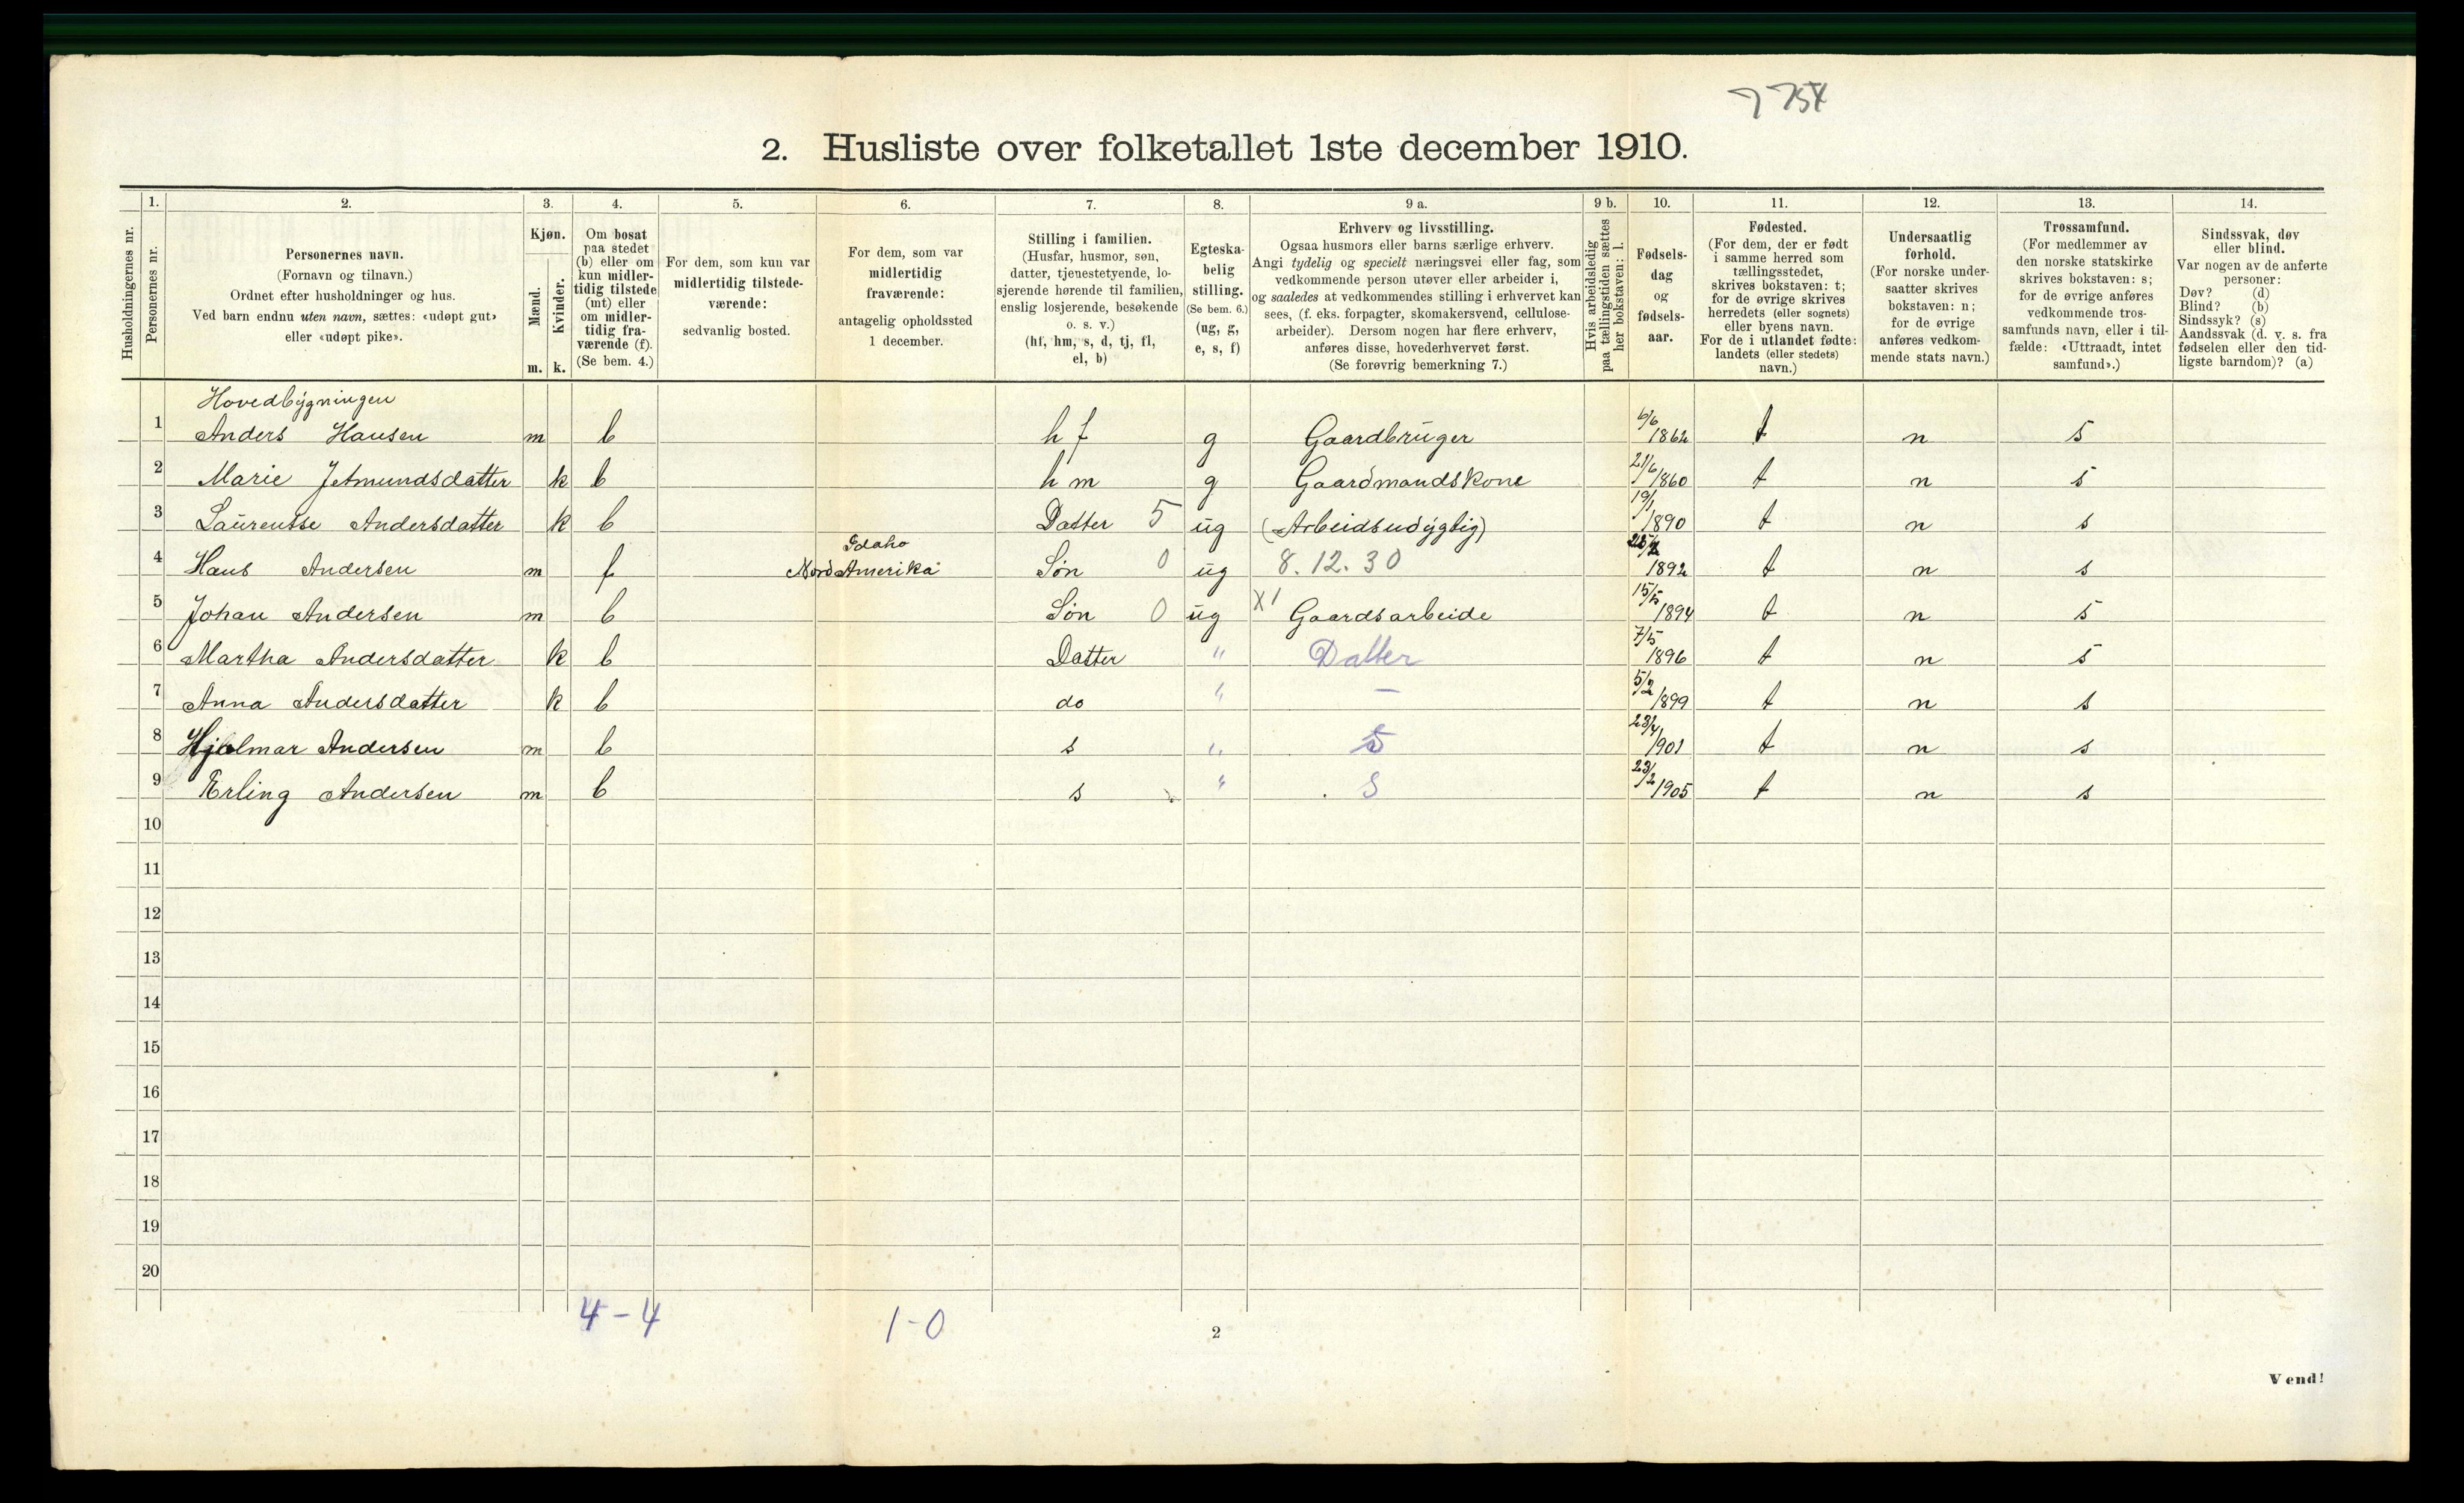 7 754
2. Husliste over folketallet 1ste december 1910.
Husholdningernes nr.
1. Personernes nr.
2. Personernes navn.
(Fornavn og tilnavn.)
Ordnet efter husholdninger og hus.
Ved barn endnu uten navn, sættes: «udøpt gut»
eller «udøpt pike».
3. Kjøn.
Mænd. Kvinder.
m. k.
4. Om bosat
paa stedet
(b) eller om
kun midler-
tidig tilstede
(mt) eller
om midler-
tidig fra-
værende (f).
(Se bem. 4.)
5. For dem, som kun var
midlertidig tilstede-
værende:
sedvanlig bosted.
6. For dem, som var
midlertidig
fraværende:
antagelig opholdssted
1 december.
7. Stilling i familien.
(Husfar, husmor, søn,
datter, tjenestetyende, lo-
sjerende hørende til familien,
enslig losjerende, besøkende
o. s. v.)
(hf, hm, s, d, tj, fl,
el, b)
8. Egteska-
belig
stilling.
(Se bem. 6.)
(ug, g,
e, s, f)
9 a. Erhverv og livsstilling.
Ogsaa husmors eller barns særlige erhverv.
Angi tydelig og specielt næringsvei eller fag, som
vedkommende person utøver eller arbeider i,
og saaledes at vedkommendes stilling i erhvervet kan
sees, (f. eks. forpagter, skomakersvend, cellulose-
arbeider). Dersom nogen har flere erhverv,
anføres disse, hovederhvervet først.
(Se forøvrig bemerkning 7.)
9 b. Hvis arbeidsledig
paa tællingstiden sættes
her bokstaven: l.
10. Fødsels-
dag
og
fødsels-
aar.
11. Fødested.
(For dem, der er født
i samme herred som
tællingsstedet,
skrives bokstaven: t;
for de øvrige skrives
herredets (eller sognets)
eller byens navn.
For de i utlandet fødte:
landets (eller stedets)
navn.)
12. Undersaatlig
forhold.
(For norske under-
saatter skrives
bokstaven: n;
for de øvrige
anføres vedkom-
mende stats navn.)
13. Trossamfund.
(For medlemmer av
den norske statskirke
skrives bokstaven: s;
for de øvrige anføres
vedkommende tros-
samfunds navn, eller i til-
fælde: «Uttraadt, intet
samfund».)
14. Sindssvak, døv
eller blind.
Var nogen av de anførte
personer:
Døv? (d)
Blind? (b)
Sindssyk? (s)
Aandssvak (d. v. s. fra
fødselen eller den tid-
ligste barndom)? (a)
Hovedbygningen
1 Anders Hansen m b h f g Gaardbruger 6/6 1862 t n s
2 Marie Jetmundsdatter k b h m g Gaardmandskone 21/6 1860 t n s
3 Laurentse Andersdatter k b Datter 5 ug (Arbeidsudygtig) 19/1 1890 t n s
Idaho
4 Hans Andersen m f Nord Amerika Søn 0 ug 8.12.30 1892 t n s
5 Johan Andersen m b Søn 0 ug X1 Gaardsarbeide 15/5 1894 t n s
6 Martha Andersdatter k b Datter " Datter 7/5 1896 t n s
7 Anna Andersdatter k b do " — 5/2 1899 t n s
8 Hjalmar Andersen m b s " S 23/4 1901 t n s
9 Erling Andersen m b s " S 23/2 1905 t n s
10
11
12
13
14
15
16
17
18
19
20
4-4 1-0
2
Vend!